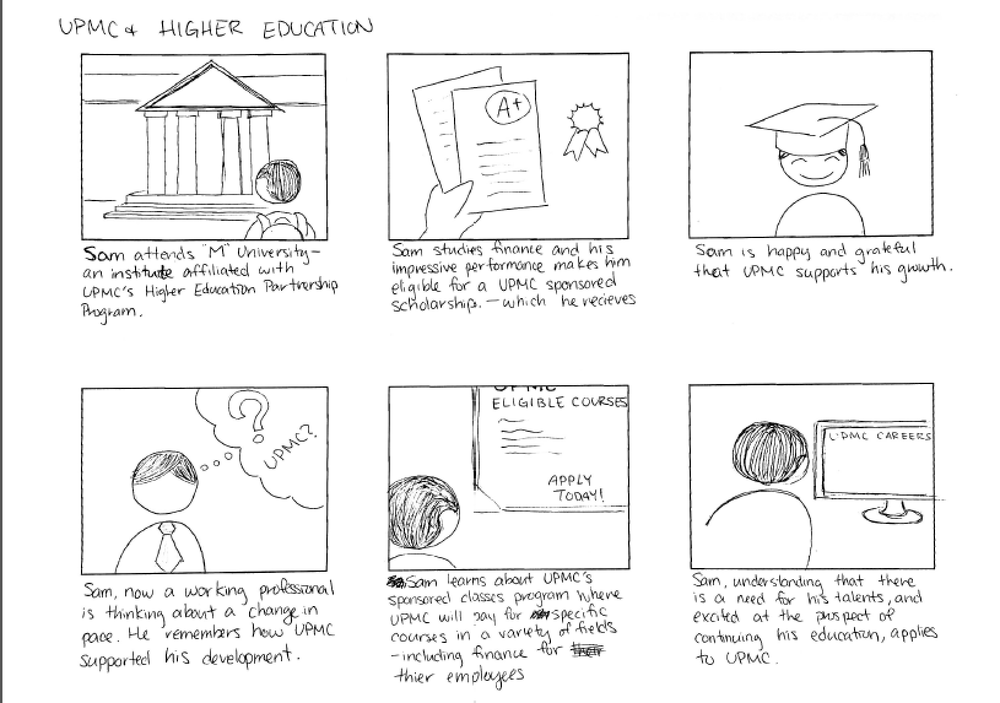 UPMC & HIGHER EDUCATION
Sam attends "M" University-
an institute affiliated with
UPMC's Higher Education Partnership
Program.
A+
Sam studies finance and his
impressive performance makes him
eligible for a UPMC sponsored
scholarship. - which he recieves
Sam is happy and grateful
that UPMC supports his growth.
?
UPMC?
Sam, now a working professional
is thinking about a change in
pace. He remembers how UPMC
supported his development.
UPMC
ELIGIBLE COURSES
APPLY
TODAY!
Sam learns about UPMC's
sponsored classes program where
UPMC will pay for specific
courses in a variety of fields
-including finance for
thier employees
UPMC CAREERS
Sam, understanding that there
is a need for his talents, and
excited at the prospect of
continuing his education, applies
to UPMC.